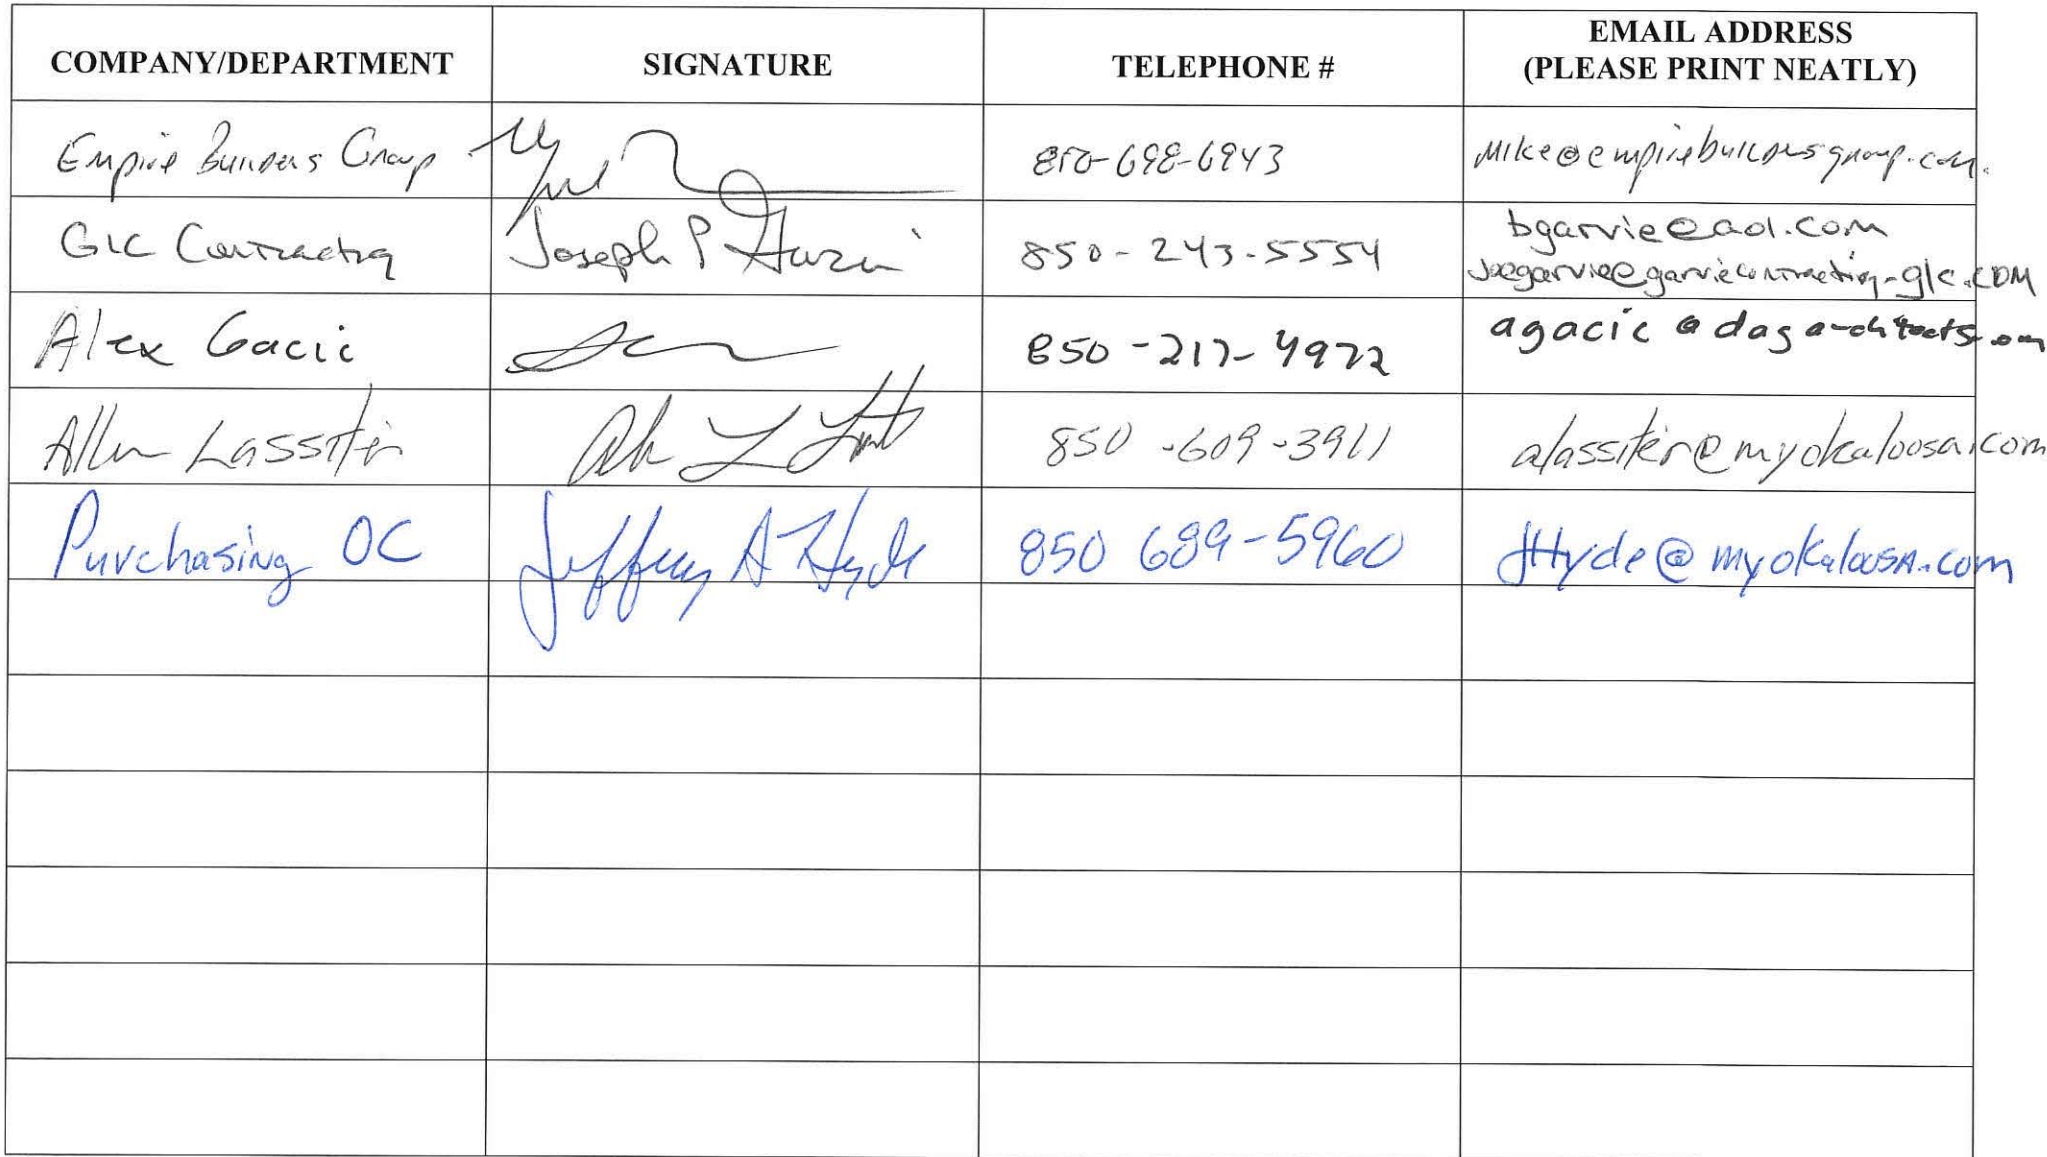 COMPANY/DEPARTMENT SIGNATURE TELEPHONE # EMAIL ADDRESS
(PLEASE PRINT NEATLY)
Empire Builders Group 850-698-6943 mike@empirebuildersgroup.com.
GLC Contracting Joseph P Garvie 850-243-5554 bgarvie@aol.com
joegarvie@garviecontracting-glc.com
Alex Gacic 850-217-4972 agacic@dagarchitects.com
Allen Lassiter 850-609-3911 alassiter@myokaloosa.com
Purchasing OC Jeffrey A Hyde 850 689-5960 JHyde@myokaloosa.com